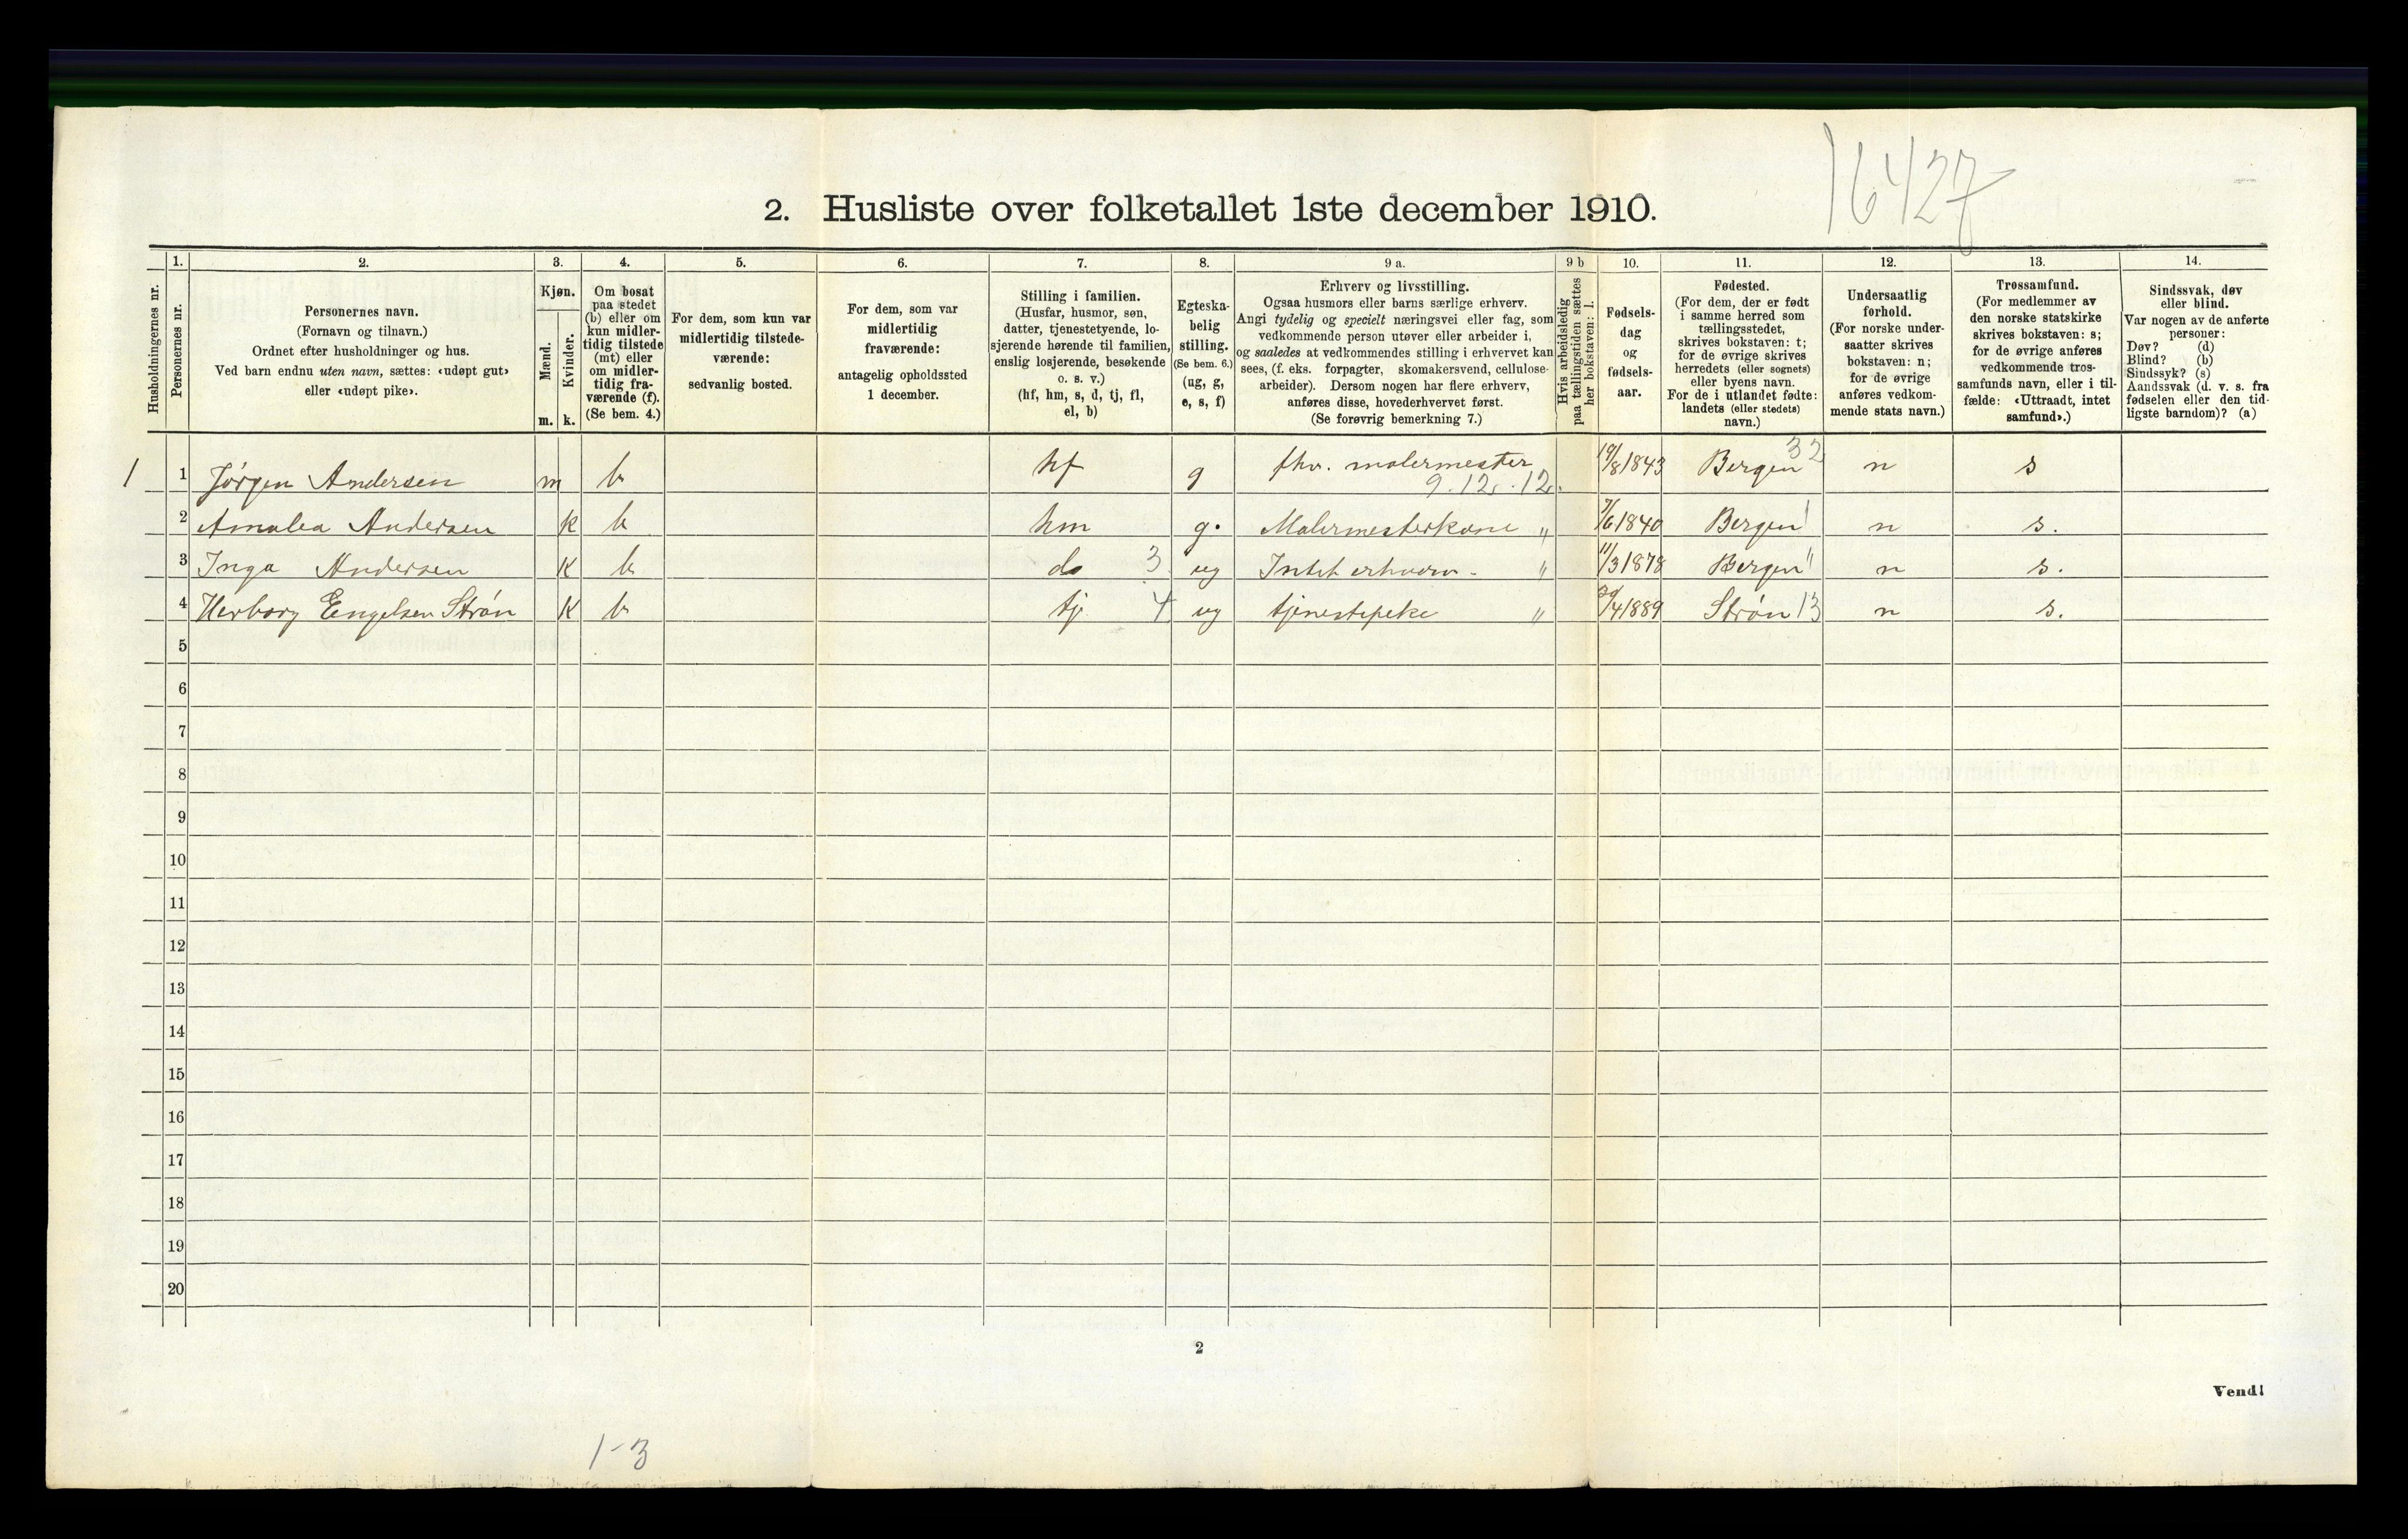 16427
2. Husliste over folketallet 1ste december 1910.
Husholdningernes nr.
1.
Personernes nr.
2.
Personernes navn.
(Fornavn og tilnavn.)
Ordnet efter husholdninger og hus.
Ved barn endnu uten navn, sættes: «udøpt gut»
eller «udøpt pike».
3.
Kjøn.
Mænd.
Kvinder.
m. k.
4.
Om bosat
paa stedet
(b) eller om
kun midler-
tidig tilstede
(mt) eller
om midler-
tidig fra-
værende (f).
(Se bem. 4.)
5.
For dem, som kun var
midlertidig tilstede-
værende:
sedvanlig bosted.
6.
For dem, som var
midlertidig
fraværende:
antagelig opholdssted
1 december.
7.
Stilling i familien.
(Husfar, husmor, søn,
datter, tjenestetyende, lo-
sjerende hørende til familien,
enslig losjerende, besøkende
o. s. v.)
(hf, hm, s, d, tj, fl,
el, b)
8.
Egteska-
belig
stilling.
(Se bem. 6.)
(ug, g,
e, s, f)
9 a.
Erhverv og livsstilling.
Ogsaa husmors eller barns særlige erhverv.
Angi tydelig og specielt næringsvei eller fag, som
vedkommende person utøver eller arbeider i,
og saaledes at vedkommendes stilling i erhvervet kan
sees, (f. eks. forpagter, skomakersvend, cellulose-
arbeider). Dersom nogen har flere erhverv,
anføres disse, hovederhvervet først.
(Se forøvrig bemerkning 7.)
9 b
Hvis arbeidsledig
paa tællingstiden sættes
her bokstaven: l.
10.
Fødsels-
dag
og
fødsels-
aar.
11.
Fødested.
(For dem, der er født
i samme herred som
tællingsstedet,
skrives bokstaven: t;
for de øvrige skrives
herredets (eller sognets)
eller byens navn.
For de i utlandet fødte:
landets (eller stedets)
navn.)
12.
Undersaatlig
forhold.
(For norske under-
saatter skrives
bokstaven: n;
for de øvrige
anføres vedkom-
mende stats navn.)
13.
Trossamfund.
(For medlemmer av
den norske statskirke
skrives bokstaven: s;
for de øvrige anføres
vedkommende tros-
samfunds navn, eller i til-
fælde: «Uttraadt, intet
samfund».)
14.
Sindssvak, døv
eller blind.
Var nogen av de anførte
personer:
Døv? (d)
Blind? (b)
Sindssyk? (s)
Aandssvak (d. v. s. fra
fødselen eller den tid-
ligste barndom)? (a)
1 1 Jörgen Andersen m b hf g fhv. malermester 9.12.12. 19/8 1843 Bergen 32 n s
2 Amalea Andersen k b hm g. Malermesterkone " 7/6 1840 Bergen n s.
3 Inga Andersen K b d 3 ug Intet erhverv - " 11/3 1878 Bergen n s.
4 Herborg Engelsen Strön K b tj 4 ug tjenestepeke " 29/4 1889 Strön 13 n s.
5
6
7
8
9
10
11
12
13
14
15
16
17
18
19
20
2
Vend!
1-3